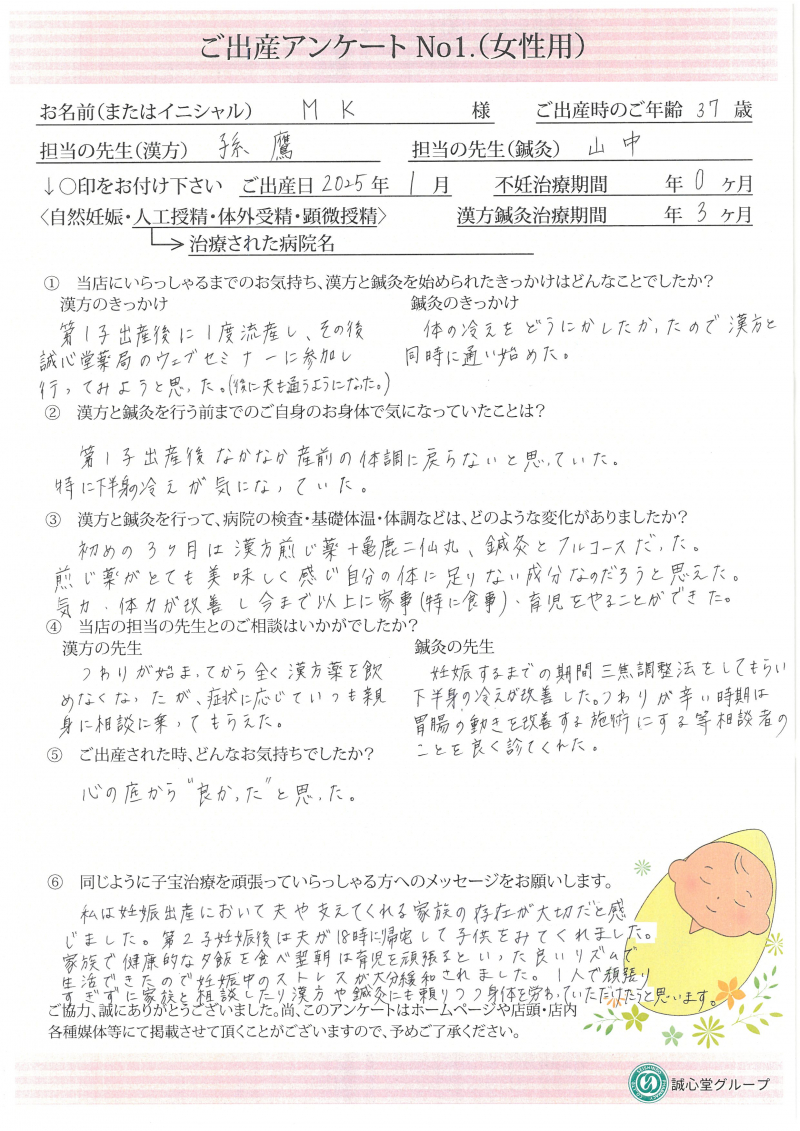 ご出産アンケート No1.（女性用）
お名前（またはイニシャル） M K 様 ご出産時のご年齢 37 歳
担当の先生（漢方） 孫 鷹 担当の先生（鍼灸） 山中
↓○印をお付け下さい ご出産日 2025年 1月 不妊治療期間 年 0 ヶ月
〈自然妊娠・人工授精・体外受精・顕微授精〉 漢方鍼灸治療期間 年 3 ヶ月
治療された病院名
① 当店にいらっしゃるまでのお気持ち、漢方と鍼灸を始められたきっかけはどんなことでしたか？
漢方のきっかけ
第1子出産後に1度流産し、その後
誠心堂薬局のウェブセミナーに参加し
行ってみようと思った。（後に夫も通うようになった。）
鍼灸のきっかけ
体の冷えをどうにかしたかったので漢方と
同時に通い始めた。
② 漢方と鍼灸を行う前までのご自身のお身体で気になっていたことは？
第1子出産後なかなか産前の体調に戻らないと思っていた。
特に下半身の冷えが気になっていた。
③ 漢方と鍼灸を行って、病院の検査・基礎体温・体調などは、どのような変化がありましたか？
初めの3ヶ月は漢方煎じ薬＋亀鹿二仙丸、鍼灸とフルコースだった。
煎じ薬がとても美味しく感じ自分の体に足りない成分なのだろうと思えた。
気力・体力が改善し今まで以上に家事（特に食事）、育児をやることができた。
④ 当店の担当の先生とのご相談はいかがでしたか？
漢方の先生
つわりが始まってから全く漢方薬を飲
めなくなったが、症状に応じていつも親
身に相談に乗ってもらえた。
鍼灸の先生
妊娠するまでの期間三焦調整法をしてもらい
下半身の冷えが改善した。つわりが辛い時期は
胃腸の動きを改善する施術にする等相談者の
ことを良く診てくれた。
⑤ ご出産された時、どんなお気持ちでしたか？
心の底から“良かった”と思った。
⑥ 同じように子宝治療を頑張っていらっしゃる方へのメッセージをお願いします。
私は妊娠出産において夫や支えてくれる家族の存在が大切だと感
じました。第2子妊娠後は夫が18時に帰宅して子供をみてくれました。
家族で健康的な夕飯を食べ翌朝は育児を頑張るといった良いリズムで
生活できたので妊娠中のストレスが大分緩和されました。1人で頑張り
すぎずに家族と相談したり漢方や鍼灸にも頼りつつ身体を労わっていただけたらと思います。
ご協力、誠にありがとうございました。尚、このアンケートはホームページや店頭・店内
各種媒体等にて掲載させて頂くことがございますので、予めご了承ください。
誠心堂グループ